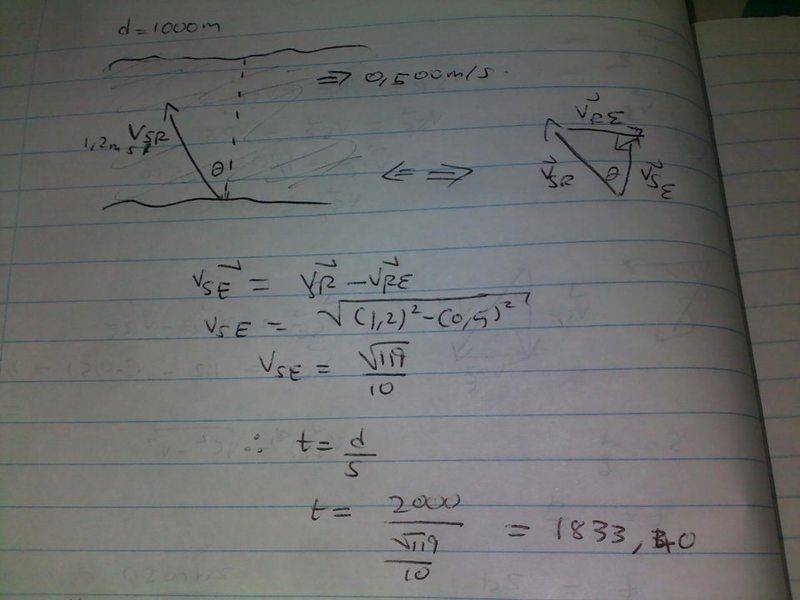 d = 1000m
⇒ 0,500m/s.
1,2m/s V⃗SR
θ
V⃗RE
⇐ ⇒
V⃗SR θ V⃗SE
V⃗SE = V⃗SR − V⃗RE
VSE = √((1,2)² − (0,5)²)
VSE = √119/10
∴ t = d/s
t = 2000/(√119/10) = 1833,40